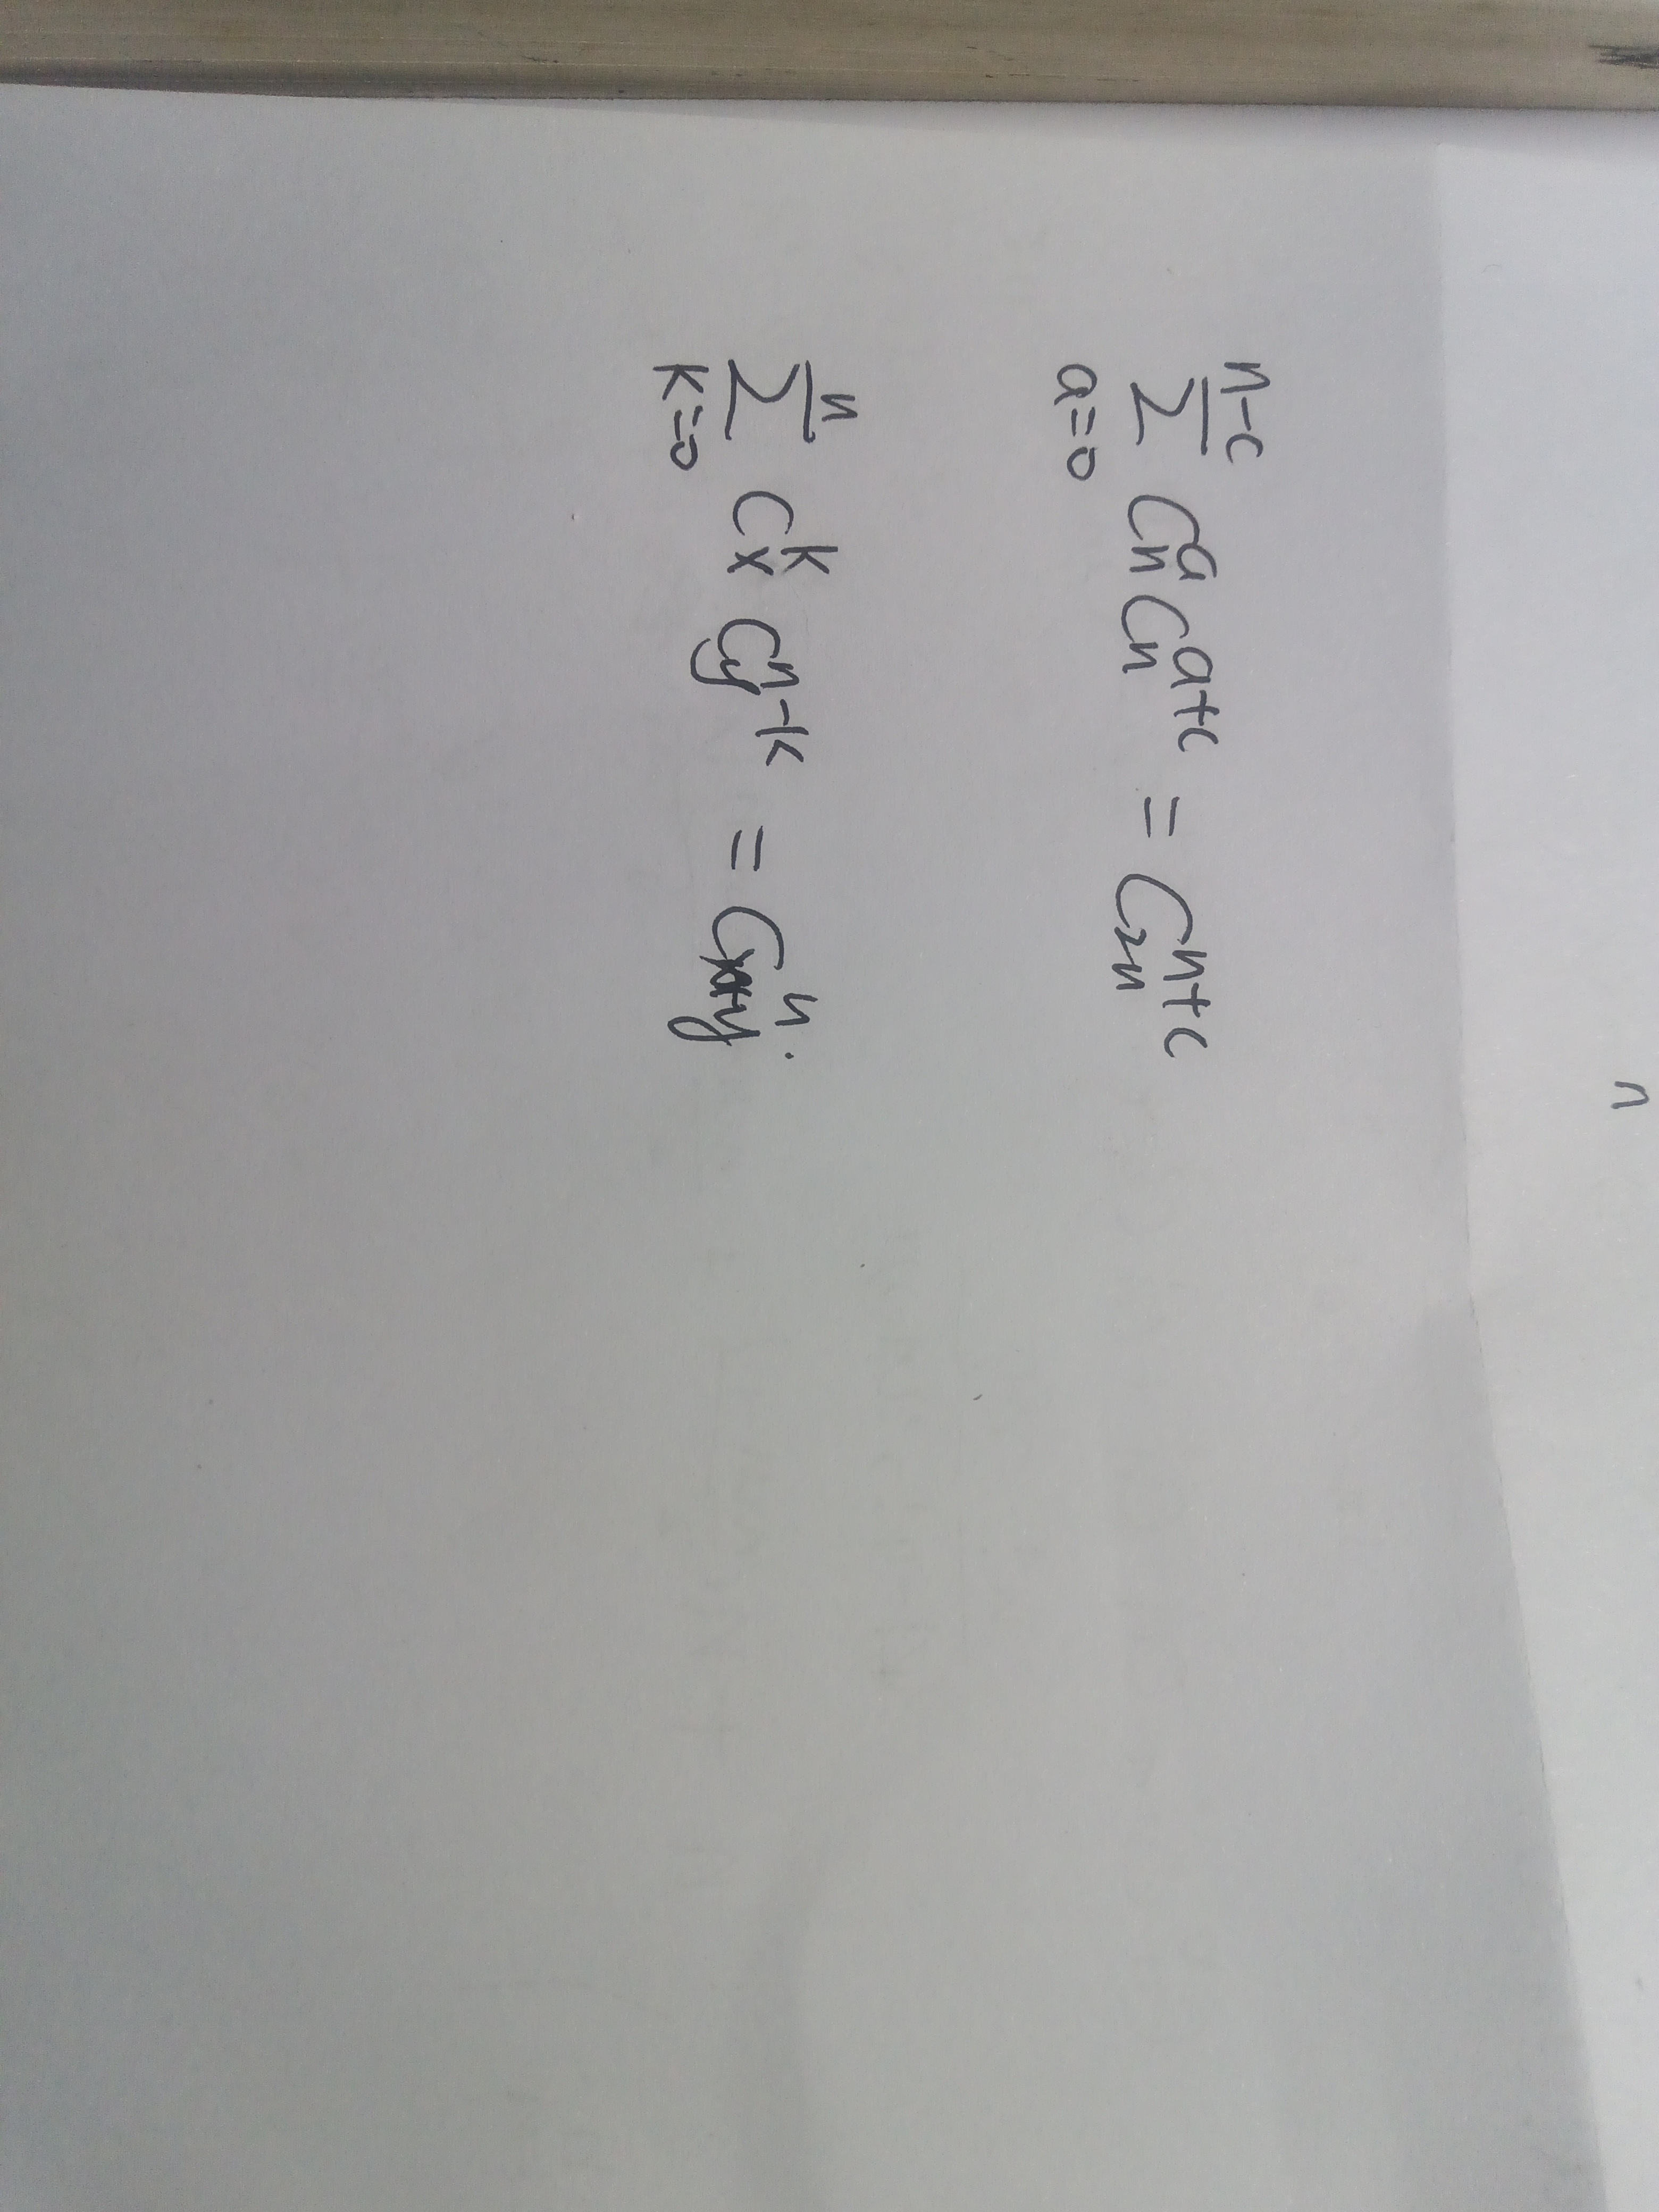 n
\sum_{a=0}^{n-c} C_n^a C_n^{a+c} = C_{2n}^{n+c}
\sum_{k=0}^{n} C_x^k C_y^{n-k} = C_{x+y}^n.